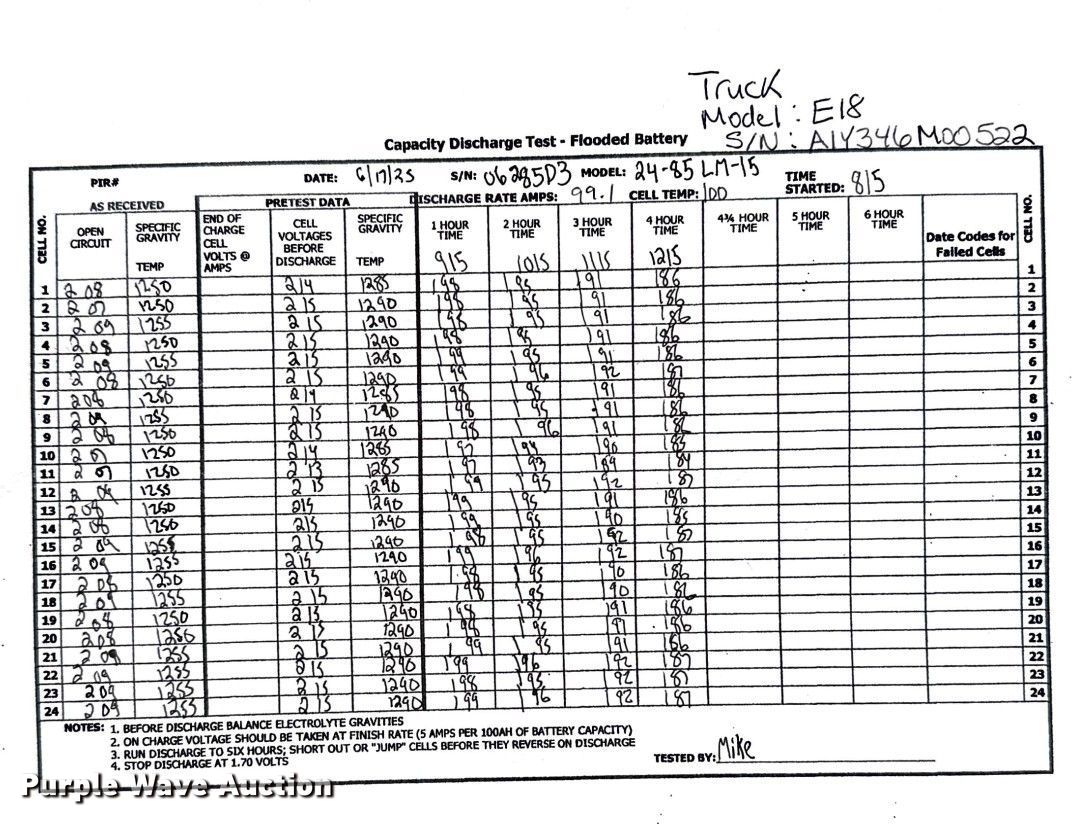 Truck
Model: E18
S/N: A1Y346M00522
Capacity Discharge Test - Flooded Battery
PIR# DATE: 6/17/25 S/N: 06285D3 MODEL: 24-85 LM-15 TIME STARTED: 815
AS RECEIVED PRETEST DATA DISCHARGE RATE AMPS: 99.1 CELL TEMP: 100
CELL NO. OPEN CIRCUIT SPECIFIC GRAVITY TEMP END OF CHARGE CELL VOLTS @ AMPS CELL VOLTAGES BEFORE DISCHARGE SPECIFIC GRAVITY TEMP 1 HOUR TIME 2 HOUR TIME 3 HOUR TIME 4 HOUR TIME 4¾ HOUR TIME 5 HOUR TIME 6 HOUR TIME Date Codes for Failed Cells CELL NO.
915 1015 1115 1215
1 2 08 1250 214 1285 198 195 191 186 1
2 2 07 1250 2 15 1290 198 195 191 186 2
3 2 09 1255 2 15 1290 198 195 191 186 3
4 2 08 1250 2 15 1290 198 195 191 186 4
5 2 09 1255 2 15 1290 199 195 191 186 5
6 2 08 1250 2 15 1290 199 196 192 187 6
7 208 1250 214 1285 198 195 191 186 7
8 2 09 1255 2 15 1290 198 195 191 186 8
9 2 08 1250 2 15 1290 198 196 191 186 9
10 2 07 1250 214 1285 197 194 190 185 10
11 2 07 1250 2 13 1285 197 193 189 184 11
12 2 09 1255 2 15 1290 199 195 192 187 12
13 208 1250 215 1290 199 195 191 186 13
14 2 08 1250 215 1290 199 195 190 185 14
15 2 09 1255 215 1290 198 195 192 187 15
16 2 09 1255 215 1290 199 196 192 187 16
17 2 08 1250 2 15 1290 198 195 190 186 17
18 2 09 1255 2 15 1290 198 195 190 186 18
19 2 08 1250 2 15 1290 198 195 191 186 19
20 208 1250 2 15 1290 198 195 191 186 20
21 2 09 1255 2 15 1290 199 195 191 186 21
22 2 09 1255 2 15 1290 199 196 192 187 22
23 2 09 1255 2 15 1290 198 195 192 187 23
24 2 09 1255 2 15 1290 199 196 192 187 24
NOTES: 1. BEFORE DISCHARGE BALANCE ELECTROLYTE GRAVITIES
2. ON CHARGE VOLTAGE SHOULD BE TAKEN AT FINISH RATE (5 AMPS PER 100AH OF BATTERY CAPACITY)
3. RUN DISCHARGE TO SIX HOURS; SHORT OUT OR "JUMP" CELLS BEFORE THEY REVERSE ON DISCHARGE
4. STOP DISCHARGE AT 1.70 VOLTS
TESTED BY: Mike
Purple Wave Auction